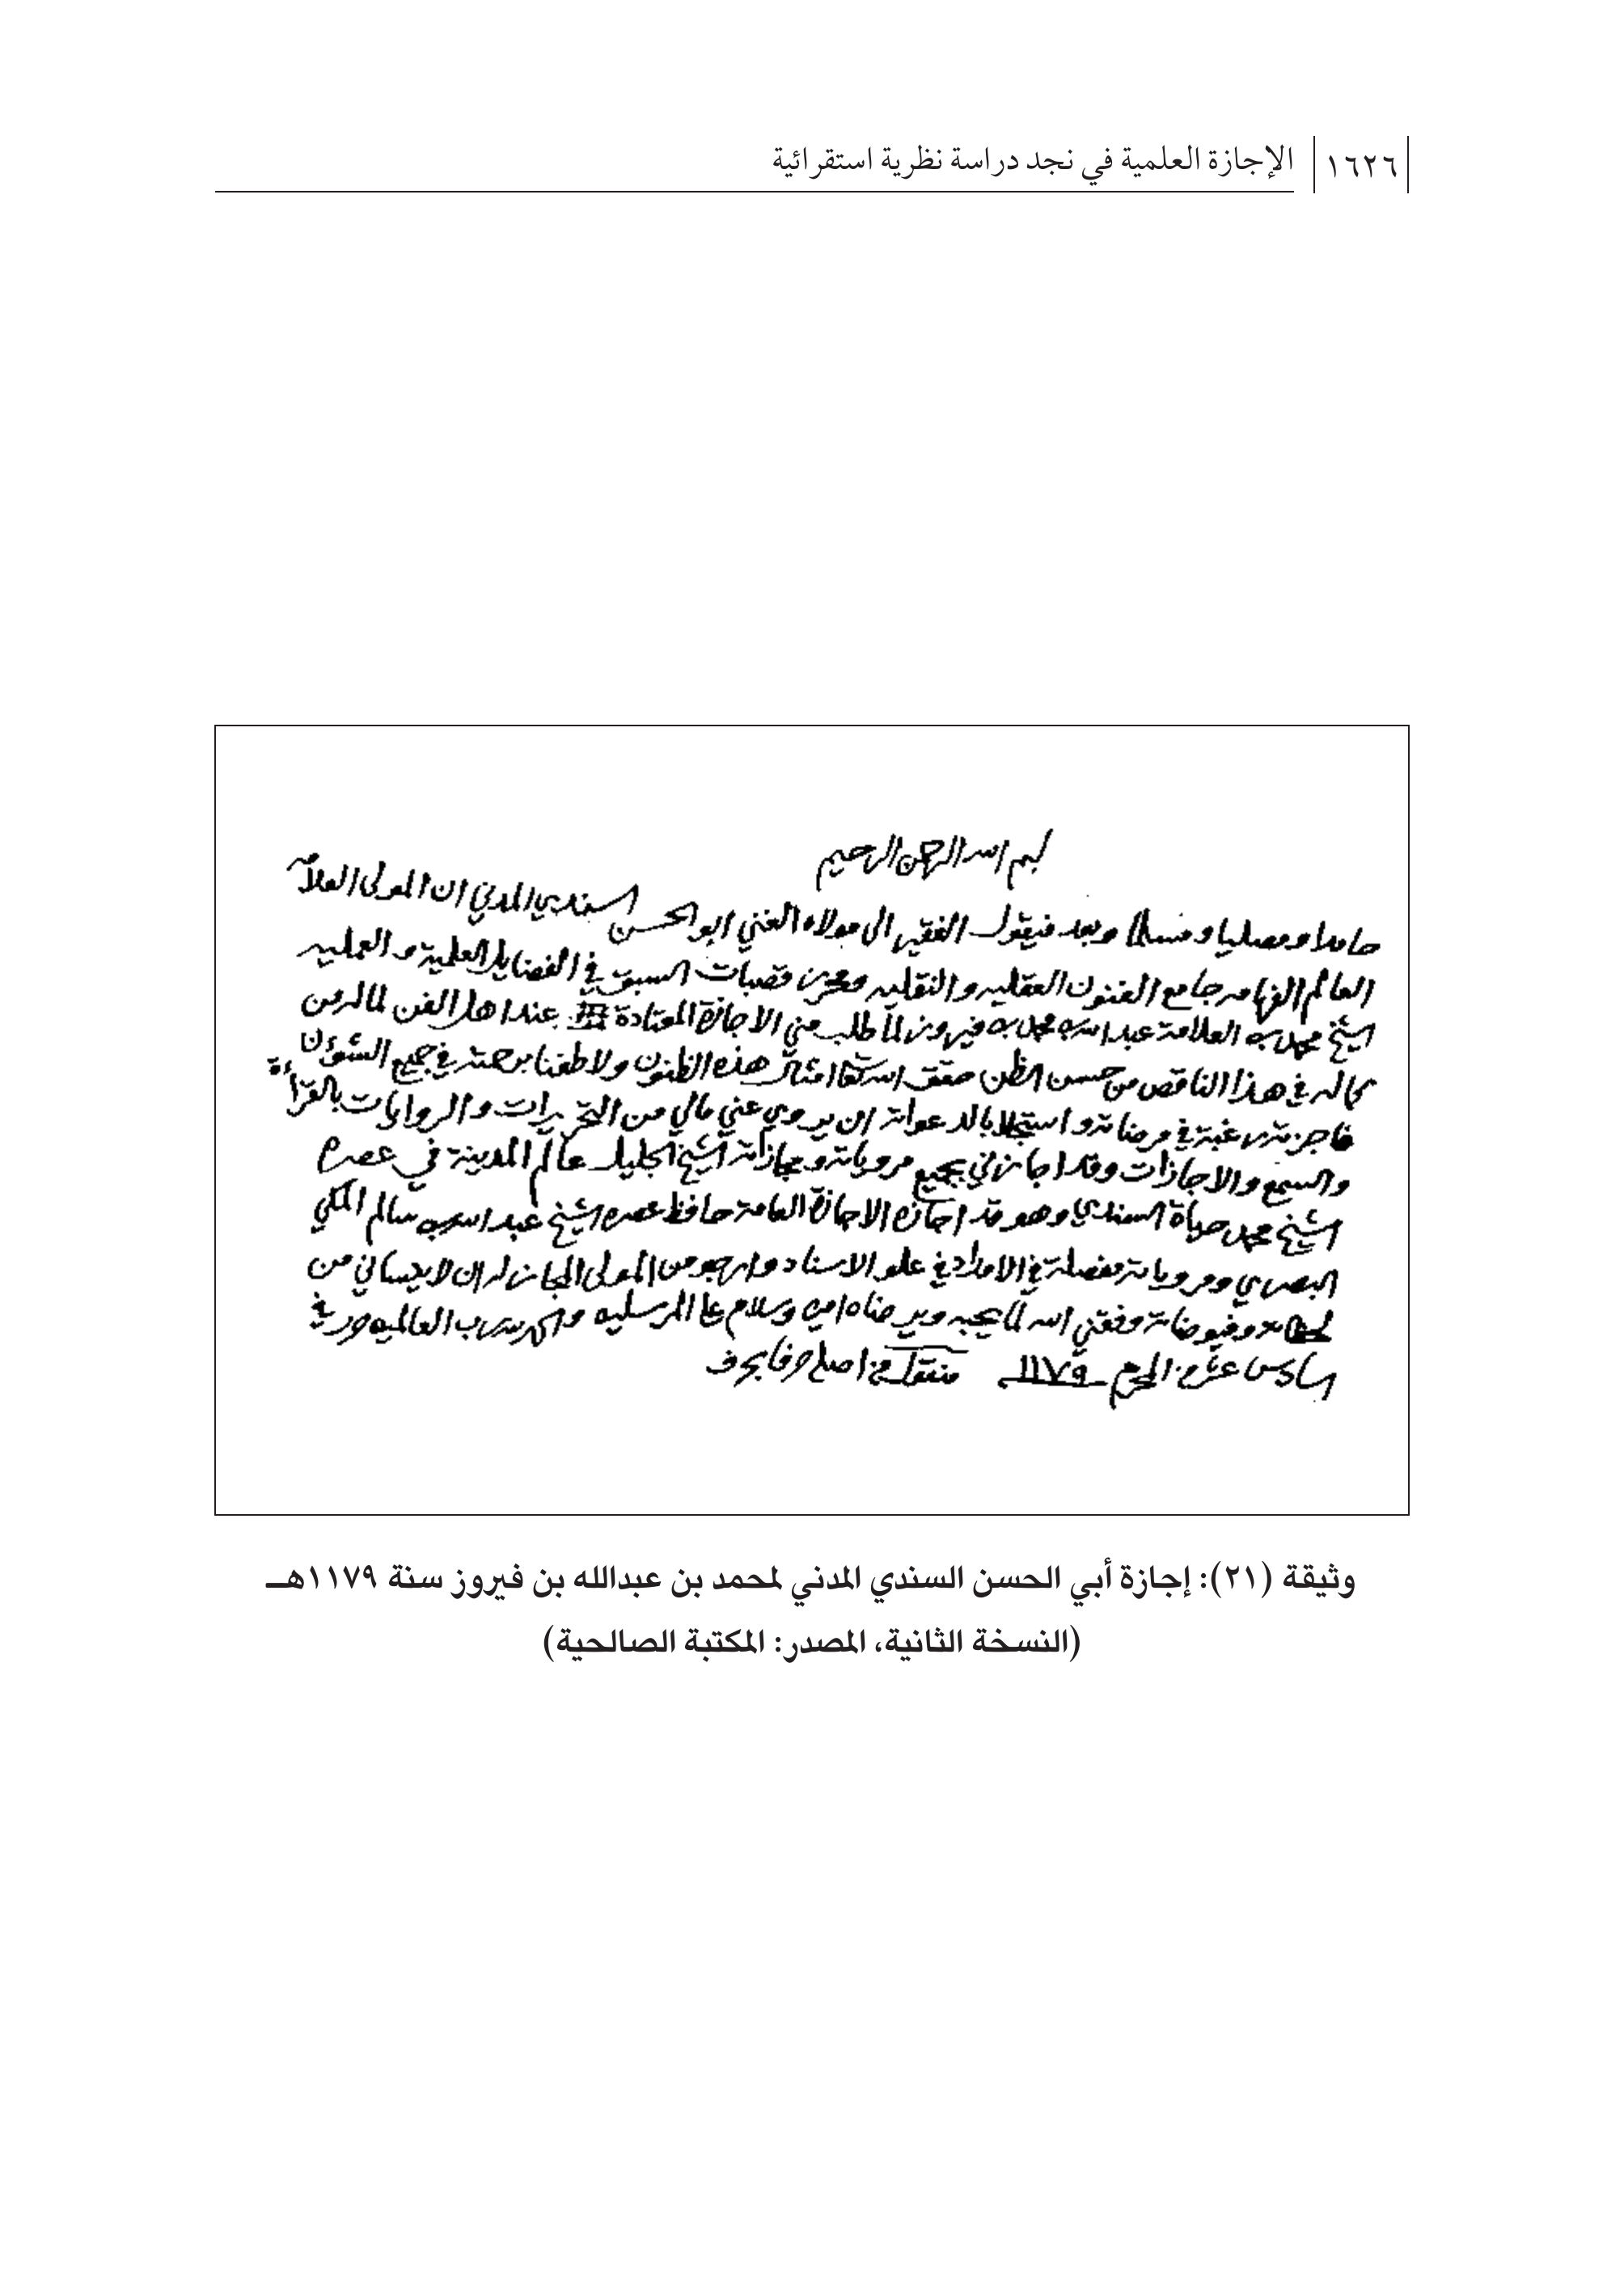 ١٦٢٦ الإجازة العلمية في نجد دراسة نظرية استقرائية
بسم الله الرحمن الرحيم
حامدا ومصليا ومسلما وبعد فيقول الفقير الى مولاه الغني ابو الحسن السندي المدني ان المولى العلامه
العالم الفهامه جامع الفنون العقليه والنقليه ومحرز قصبات السبق في الفضايل العلمية والعمليه
الشيخ محمد بن العلامة عبد الله بن محمد بن فيروز لما طلب مني الاجازة المعتادة عند اهل الفن لما له من
كماله في هذا الناقص من حسن الظن حقق الله تعالى امثال هذه الظنون ولاطفنا برحمته في جميع الشؤن
فاجزته رغبة في مرضاته واستجلابا لدعواته ان يروي عني مالي من التحريرات والروايات بالقرأءة
والسمع والاجازات وقد اجازني بجميع مروياته ومجازاته الشيخ الجليل عالم المدينة في عصره
الشيخ محمد حياة السندي وهو قد اجازه الاجازة العامة حافظ عصره الشيخ عبد الله بن سالم المكي
البصري ومروياته مفصلة في الامداد في علو الاسناد وارجو من المولى المجاز له ان لا ينساني من
وفيوضاته وفقني الله لما يحبه ويرضاه امين وسلام على المرسلين والحمد لله رب العالمين حرر في
سادس عشر من المحرم ١١٧٩ منقول من اصله حرفا بحرف
وثيقة (٢١): إجازة أبي الحسن السندي المدني لمحمد بن عبدالله بن فيروز سنة ١١٧٩هـ
(النسخة الثانية، المصدر: المكتبة الصالحية)